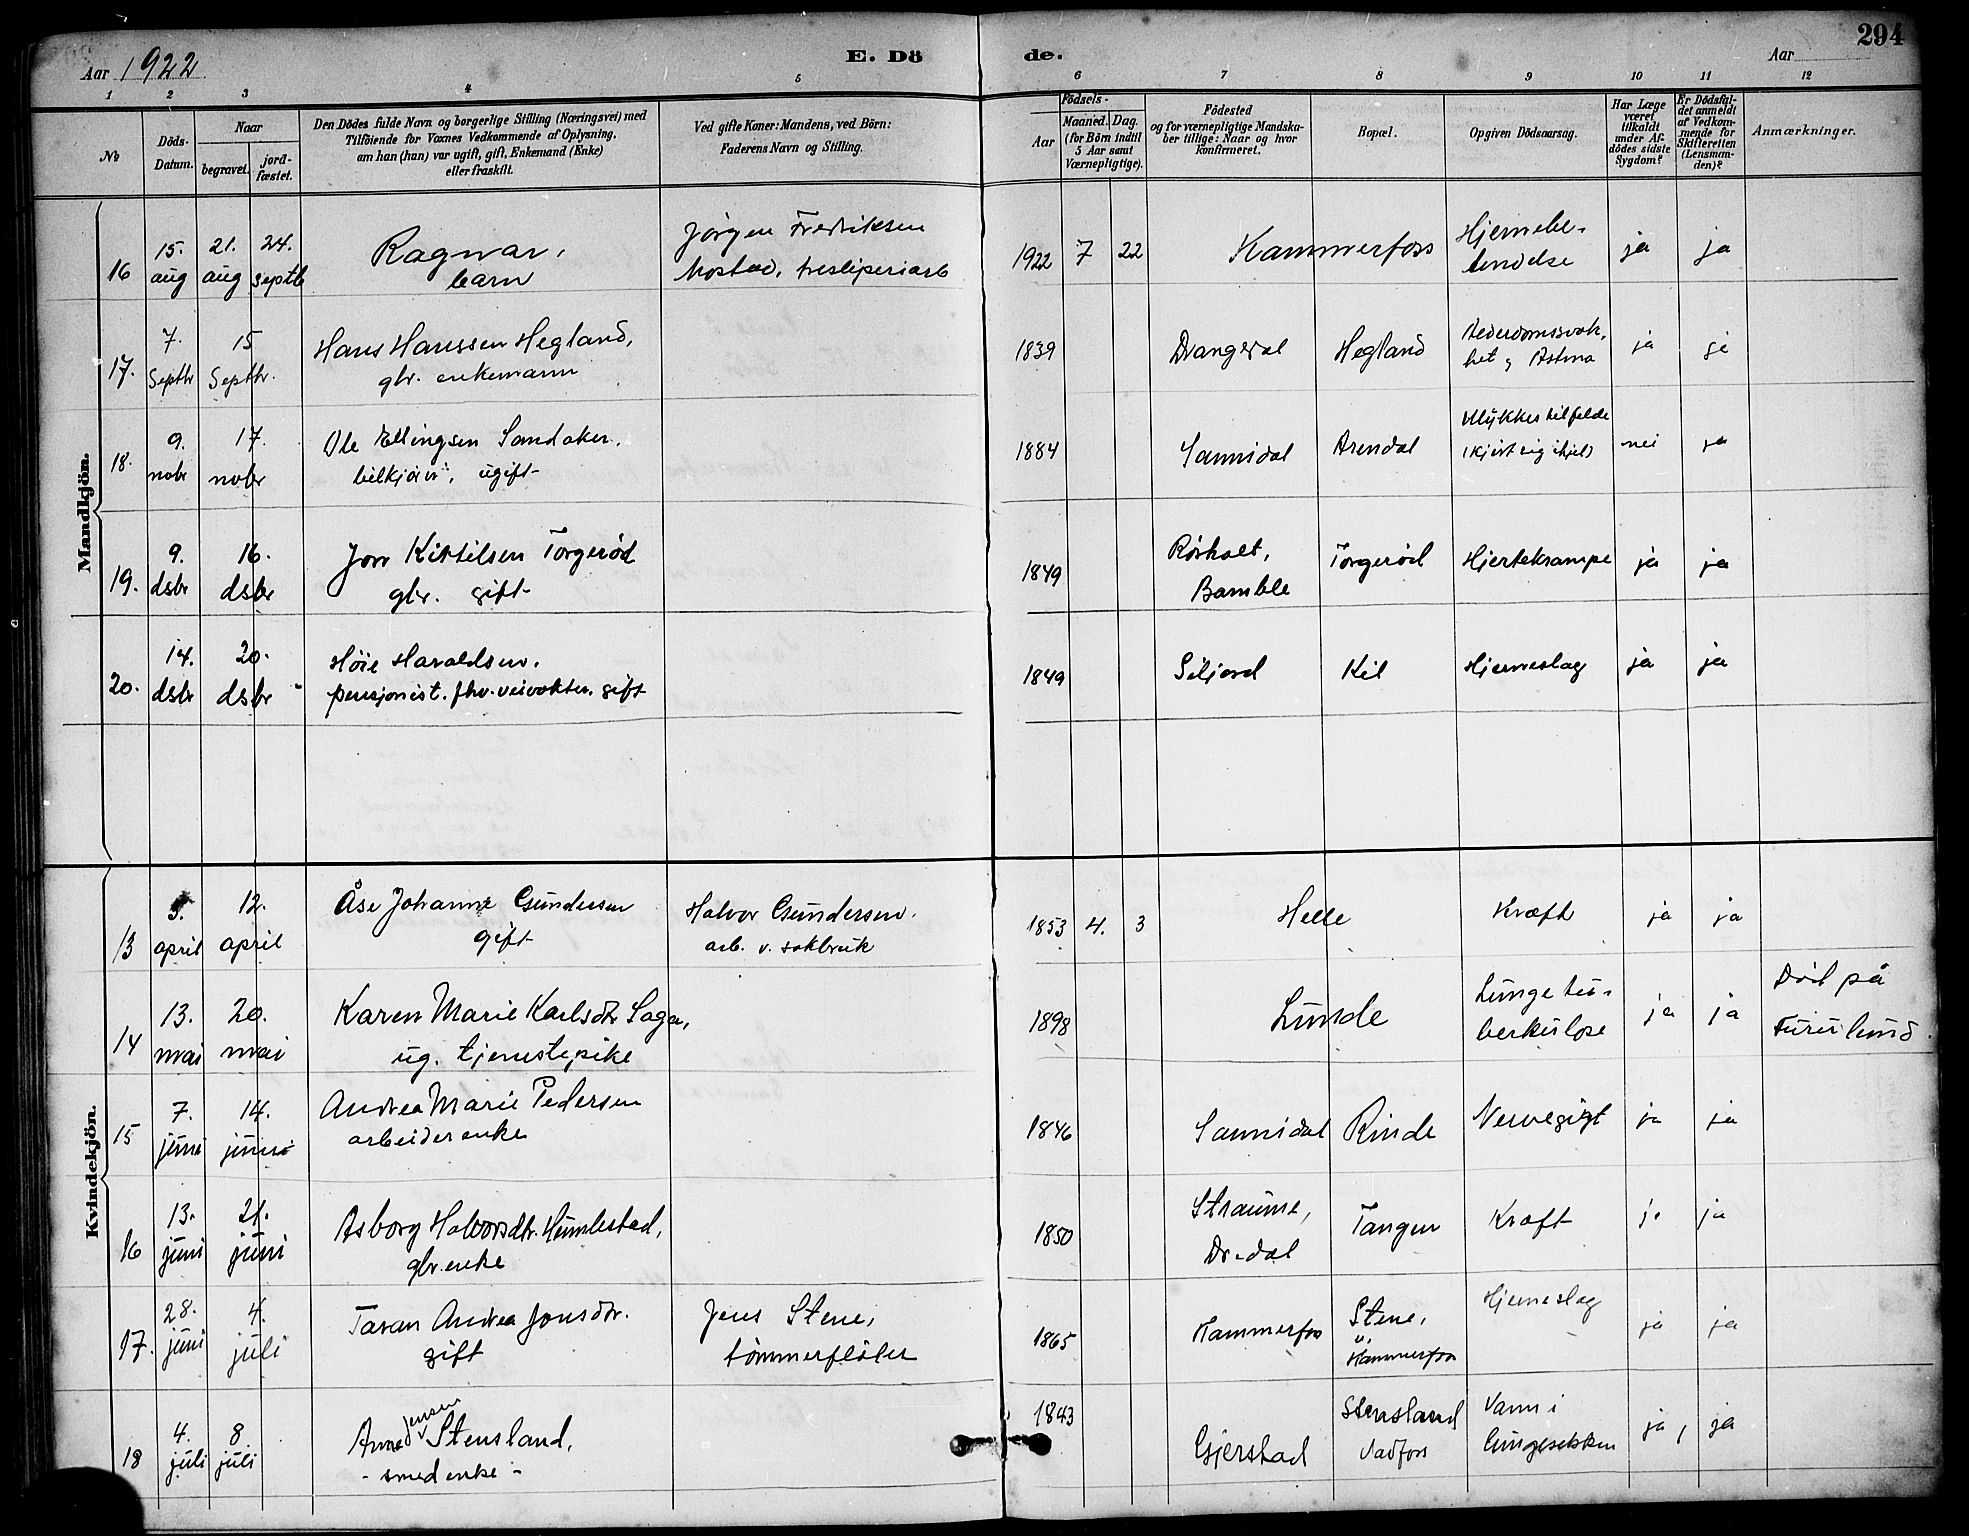 294
Aar 1922 E. Dö de. Aar
1 2 3 4 5 6 7 8 9 10 11 12
No Döds-Datum. Naar begravet. jord-fæstet. Den Dödes fulde Navn og borgerlige Stilling (Næringsvei) med Tilföiende for Voxnes Vedkommende af Oplysning, om han (hun) var ugift, gift, Enkemand (Enke) eller fraskilt. Ved gifte Koner: Mandens, ved Börn: Faderens Navn og Stilling. Födsels- Aar Maaned. Dag. (for Börn indtil 5 Aar samt Værnepligtige). Födested og for værnepligtige Mandskaber tillige: Naar og hvor konfirmeret. Bopæl. Opgiven Dödsaarsag. Har Læge været tilkaldt under Afdödes sidste Sygdom? Er Dödsfaldet anmeldt af Vedkommende for Skifteretten (Lensmanden)? Anmærkninger.
Mandkjön.
16 15. aug 21. aug 24. septb Ragnar, barn Jörgen Fredriksen tresliperiarb 1922 7 22 Kammerfoss Hjernebetendelse ja ja
17. 7. Septbr 15 Septbr. Hans Hanssen Hegland, gbr. enkemann 1839 Drangedal Hegland Alderdomssvakhet, Astma ja ja
18. 9. nobr 17. nobr Ole Ellingsen Sandaker, bilkjörer, ugift 1884 Sannidal Arendal Ulykkestilfelde (kjört sig ihjel) nei ja
19. 9. dsbr 16. dsbr Jon Kittilsen Torgeröd gbr. gift 1849 Rörholt, Bamble Torgeröd Hjertekrampe ja ja
20. 14. dsbr 20. dsbr Höie Haraldsen, pensjonist. fhv. veivokter. gift 1849 Siljord Kil Hjerneslag ja ja
Kvindekjön.
13 5. april 12. april Åse Johanne Gundersen gift Halvor Gundersen, arb. v. sakbruk 1853 4. 3 Helle Kræft ja ja
14 13. mai 20. mai Karen Marie Karlsdtr Saga, ug. tjenestepike 1898 Lunde Lungetuberkulose ja ja Död på Furulund.
15 7. juni 14. juni Andrea Marie Pedersen arbeiderenke 1846 Sannidal Rinde Nervegigt ja ja
16 13. juni 21. juni Asborg Halvorsdtr. Humlestad, gbr. enke 1850 Straume, Dr.dal Tangen Kræft ja ja
17. 28. juni 4. juli Taran Andrea Jonsdtr. gift Jens Stene, tömmerflöter 1865 Kammerfos Stene, v. Kammerfoss Hjerneslag ja ja
18 4. juli 8 juli Anne Jensen Stensland, - smedenke - 1843 Gjerstad Stensland Vadfoss Vann i lungesekken ja, ja